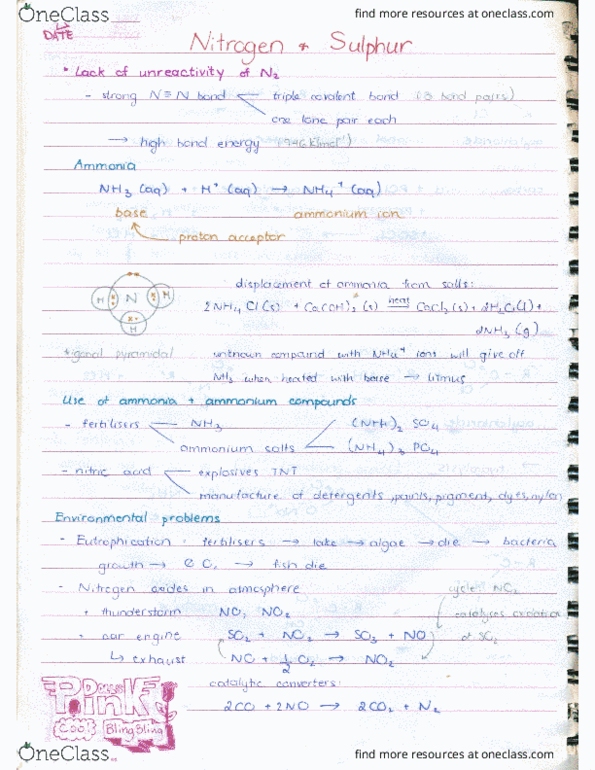 OneClass
find more resources at oneclass.com
DATE
Nitrogen + Sulphur
• Lack of unreactivity of N₂
- strong N≡N bond triple covalent bond (3 bond pairs)
one lone pair each
→ high bond energy (946 kJmol⁻¹)
Ammonia
NH₃ (aq) + H⁺ (aq) → NH₄⁺ (aq)
base ammonium ion
proton acceptor
displacement of ammonia from salts:
H N H
H
2NH₄Cl(s) + Ca(OH)₂(s) heat→ CaCl₂(s) + 2H₂O(l) +
2NH₃(g)
trigonal pyramidal unknown compound with NH₄⁺ ions will give off
NH₃ when heated with base → litmus
Use of ammonia + ammonium compounds
- fertilisers NH₃
ammonium salts (NH₄)₂ SO₄
(NH₄)₃ PO₄
- nitric acid explosives TNT
manufacture of detergents, paints, pigment, dyes, nylon
Environmental problems
- Eutrophication: fertilisers → lake → algae → die → bacteria
growth → Ø O₂ → fish die
- Nitrogen oxides in atmosphere cycle: NO₂
• thunderstorm NO, NO₂ catalyses oxidation
• car engine SO₂ + NO₂ → SO₃ + NO of SO₂
↳ exhaust NO + ½O₂ → NO₂
catalytic converters:
2CO + 2NO → 2CO₂ + N₂
PinK
Cool BlingBling
OneClass
find more resources at oneclass.com